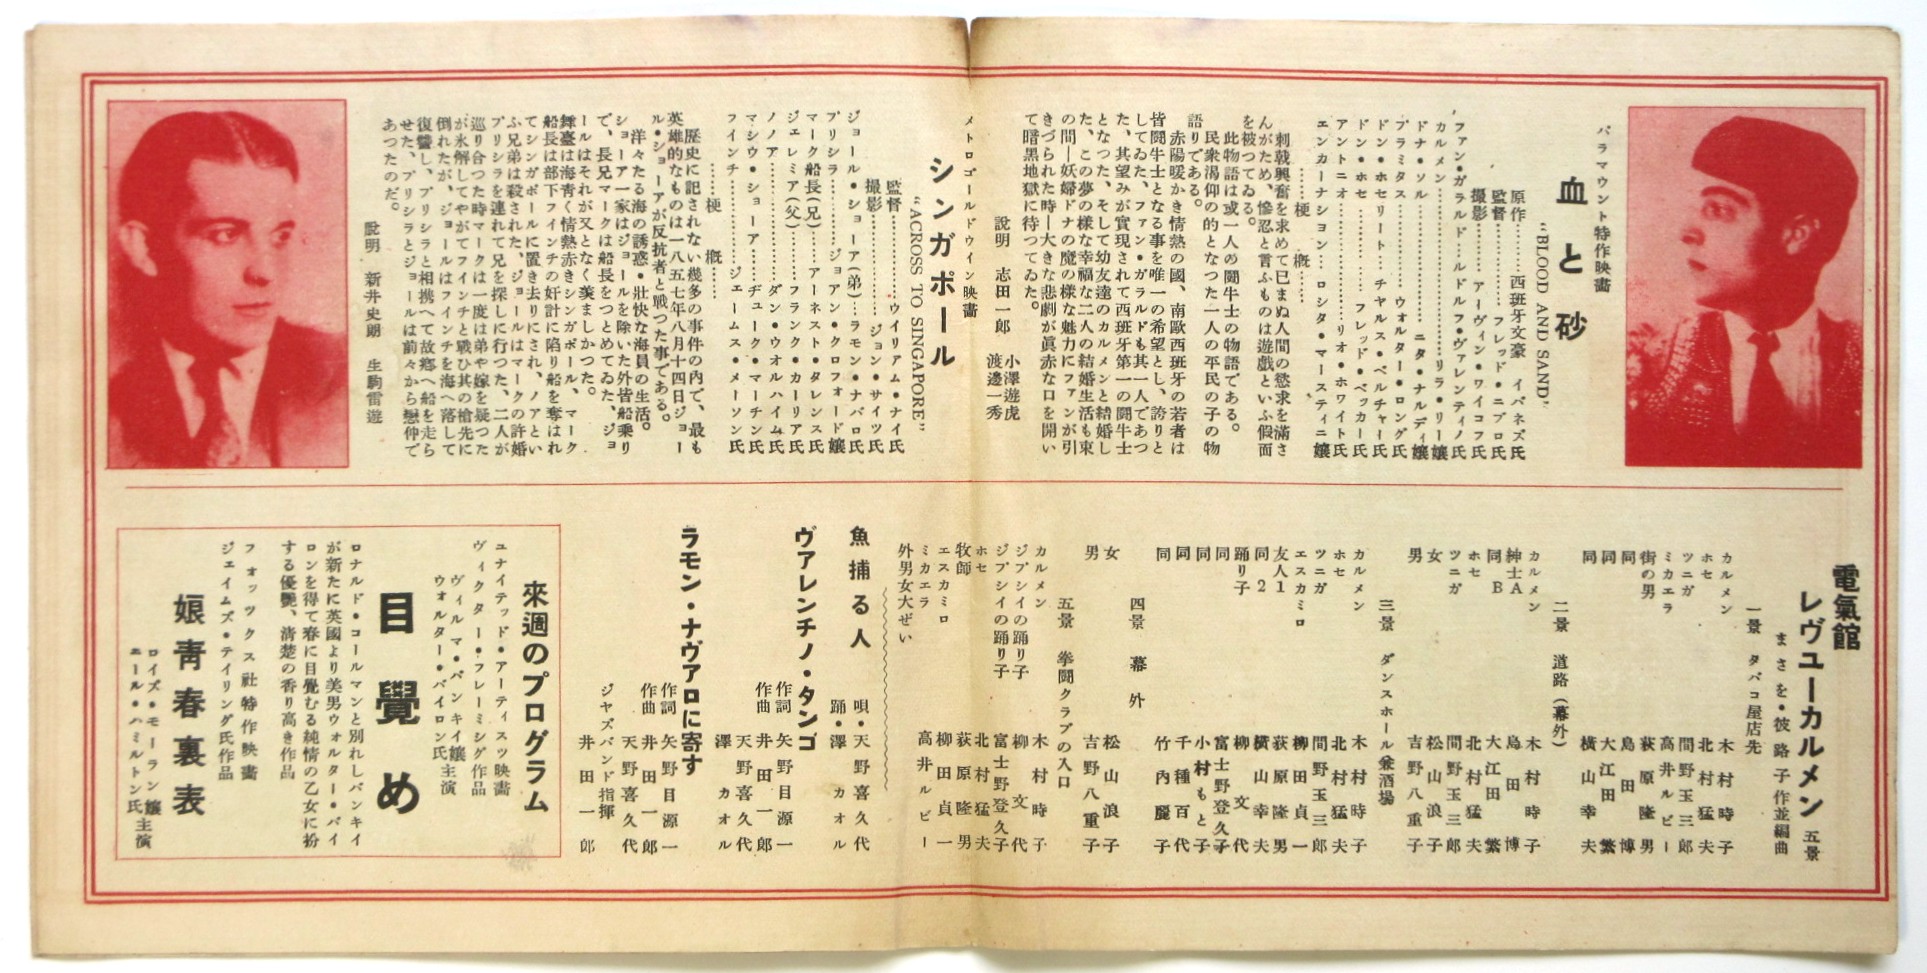 パラマウント特作映畫
血と砂
"BLOOD AND SAND"
原作………西班牙文豪 イバネズ氏
監督………………フレッド・ニブロ氏
撮影……………アーヴィン・ワイコフ氏
ファン・ガラルド…ルドルフ・ヴァレンティノ氏
カルメン………………………リラ・リー嬢
ドナ・ソル……………………ニタ・ナルディ嬢
プラミタス………………ウォルター・ロング氏
ドン・ホセリート……チヤルス・ベルチャー氏
ドン・ホセ………………フレッド・ベッカー氏
アントニオ………………リオ・ホワイト氏
エンカーナション……ロシタ・マースティニ嬢
………梗 概………
刺戟興奮を求めて已まぬ人間の慾求を滿さ
んがため、慘忍と言ふものは遊戯といふ假面
を被つてゐる。
此物語は或一人の鬪牛士の物語である。
民衆渇仰の的となつた一人の平民の子の物
語りである。
赤陽暖かき情熱の國、南歐西班牙の若者は
皆鬪牛士となる事を唯一の希望とし、誇りと
してゐた、ファン・ガラルドも其一人であつ
た、其望みが實現されて西班牙第一の鬪牛士
となつた、そして幼友達のカルメンと結婚し
た、この夢の樣な幸福な二人の結婚生活も束
の間―妖婦ドナの魔の樣な魅力にファンが引
きづられた時―大きな悲劇が眞赤な口を開い
て暗黑地獄に待つてゐた。
説明 志田一郎 小澤遊虎 渡邊一秀
メトロゴールドウイン映畫
シンガポール
"ACROSS TO SINGAPORE"
監督………………ウイリアム・ナイ氏
撮影………………ジョン・サイツ氏
ジョール・ショーア(弟)…ラモン・ナバロ氏
プリシラ………ジョアン・クロフォード嬢
マーク船長(兄)……アーネスト・タレンス氏
ジェレミア(父)……フランク・カーリア氏
ノノア……………ダン・ウオルハイム氏
マシウ・ショーア……デューク・マーチン氏
フインチ……………ジェームス・メーソン氏
………梗 概………
歴史に記されない幾多の事件の内で、最も
英雄的なものは一八五七年八月十四日ジョー
ル・ショーアが反抗者と戰つた事である。
洋々たる海の誘惑・壯快な海員の生活。
ショーア一家はジョールを除いた外皆船乘り
で、長兄マークは船長をつとめてゐた、ジョ
ールはそれが又となく羨ましかつた。
舞臺は海靑く情熱赤きシンガポール、マーク
船長は部下フインチの奸計に陷り船を奪はれ
てシンガポールに置き去りにされ、ノアとい
ふ兄弟は殺された、ジョールはマークの許婚
プリシラを連れて兄を探しに行つた、二人が
巡り合つた時マークは一度は弟や嫁を疑つた
が氷解してやがてフインチと戰ひ其の槍先に
倒れたが、ジョールはフインチを海へ落して
復讐し、プリシラと相携へて故鄕へ船を走ら
せた、プリシラとジョールは前々から戀仲で
あつたのだ。
説明 新井史朗 生駒雷遊
電氣館
レヴューカルメン 五景
まさを・彼路子作並編曲
一景 タバコ屋店先
カルメン 木村時子
ホセ 北村猛夫
ツニガ 間野玉三郎
ミカエラ 高井ルビー
街の男 萩原隆男
同 島田博
同 大江田繁
同 横山幸夫
二景 道路(幕外)
カルメン 木村時子
紳士A 島田博
同B 大江田繁
ホセ 北村猛夫
ツニガ 間野玉三郎
女 松山浪子
男 吉野八重子
三景 ダンスホール兼酒場
カルメン 木村時子
ホセ 北村猛夫
ツニガ 間野玉三郎
エスカミロ 柳田貞一
友人1 萩原隆男
同2 横山幸夫
踊り子 柳文代
同 富士野登久子
同 小村もと子
同 千種百代
同 竹内麗子
四景 幕外
女 松山浪子
男 吉野八重子
五景 拳鬪クラブの入口
カルメン 木村時子
ジプシイの踊り子 柳文代
ジプシイの踊り子 富士野登久子
ホセ 北村猛夫
牧師 萩原隆男
エスカミロ 柳田貞一
ミカエラ 高井ルビー
外男女大ぜい
魚捕る人
唄・天野喜久代
踊・澤カオル
ヴアレンチノ・タンゴ
作詞 矢野目源一
作曲 井田一郎
天野喜久代
澤カオル
ラモン・ナヴアロに寄す
作詞 矢野目源一
作曲 井田一郎
天野喜久代
ジャズバンド指揮
井田一郎
來週のプログラム
ユナイテッド・アーティスツ映畫
ヴィクター・フレーミング作品
ヴィルマ・バンキイ嬢
ウォルター・バイロン氏 主演
目覺め
ロナルド・コールマンと別れしバンキイ
が新たに英國より美男ウォルター・バイ
ロンを得て春に目覺むる純情の乙女に扮
する優艷、淸楚の香り高き作品
フォックス社特作映畫
ジェイムズ・テイリング氏作品
娘靑春裏表
ロイズ・モーラン嬢
ニール・ハミルトン氏 主演